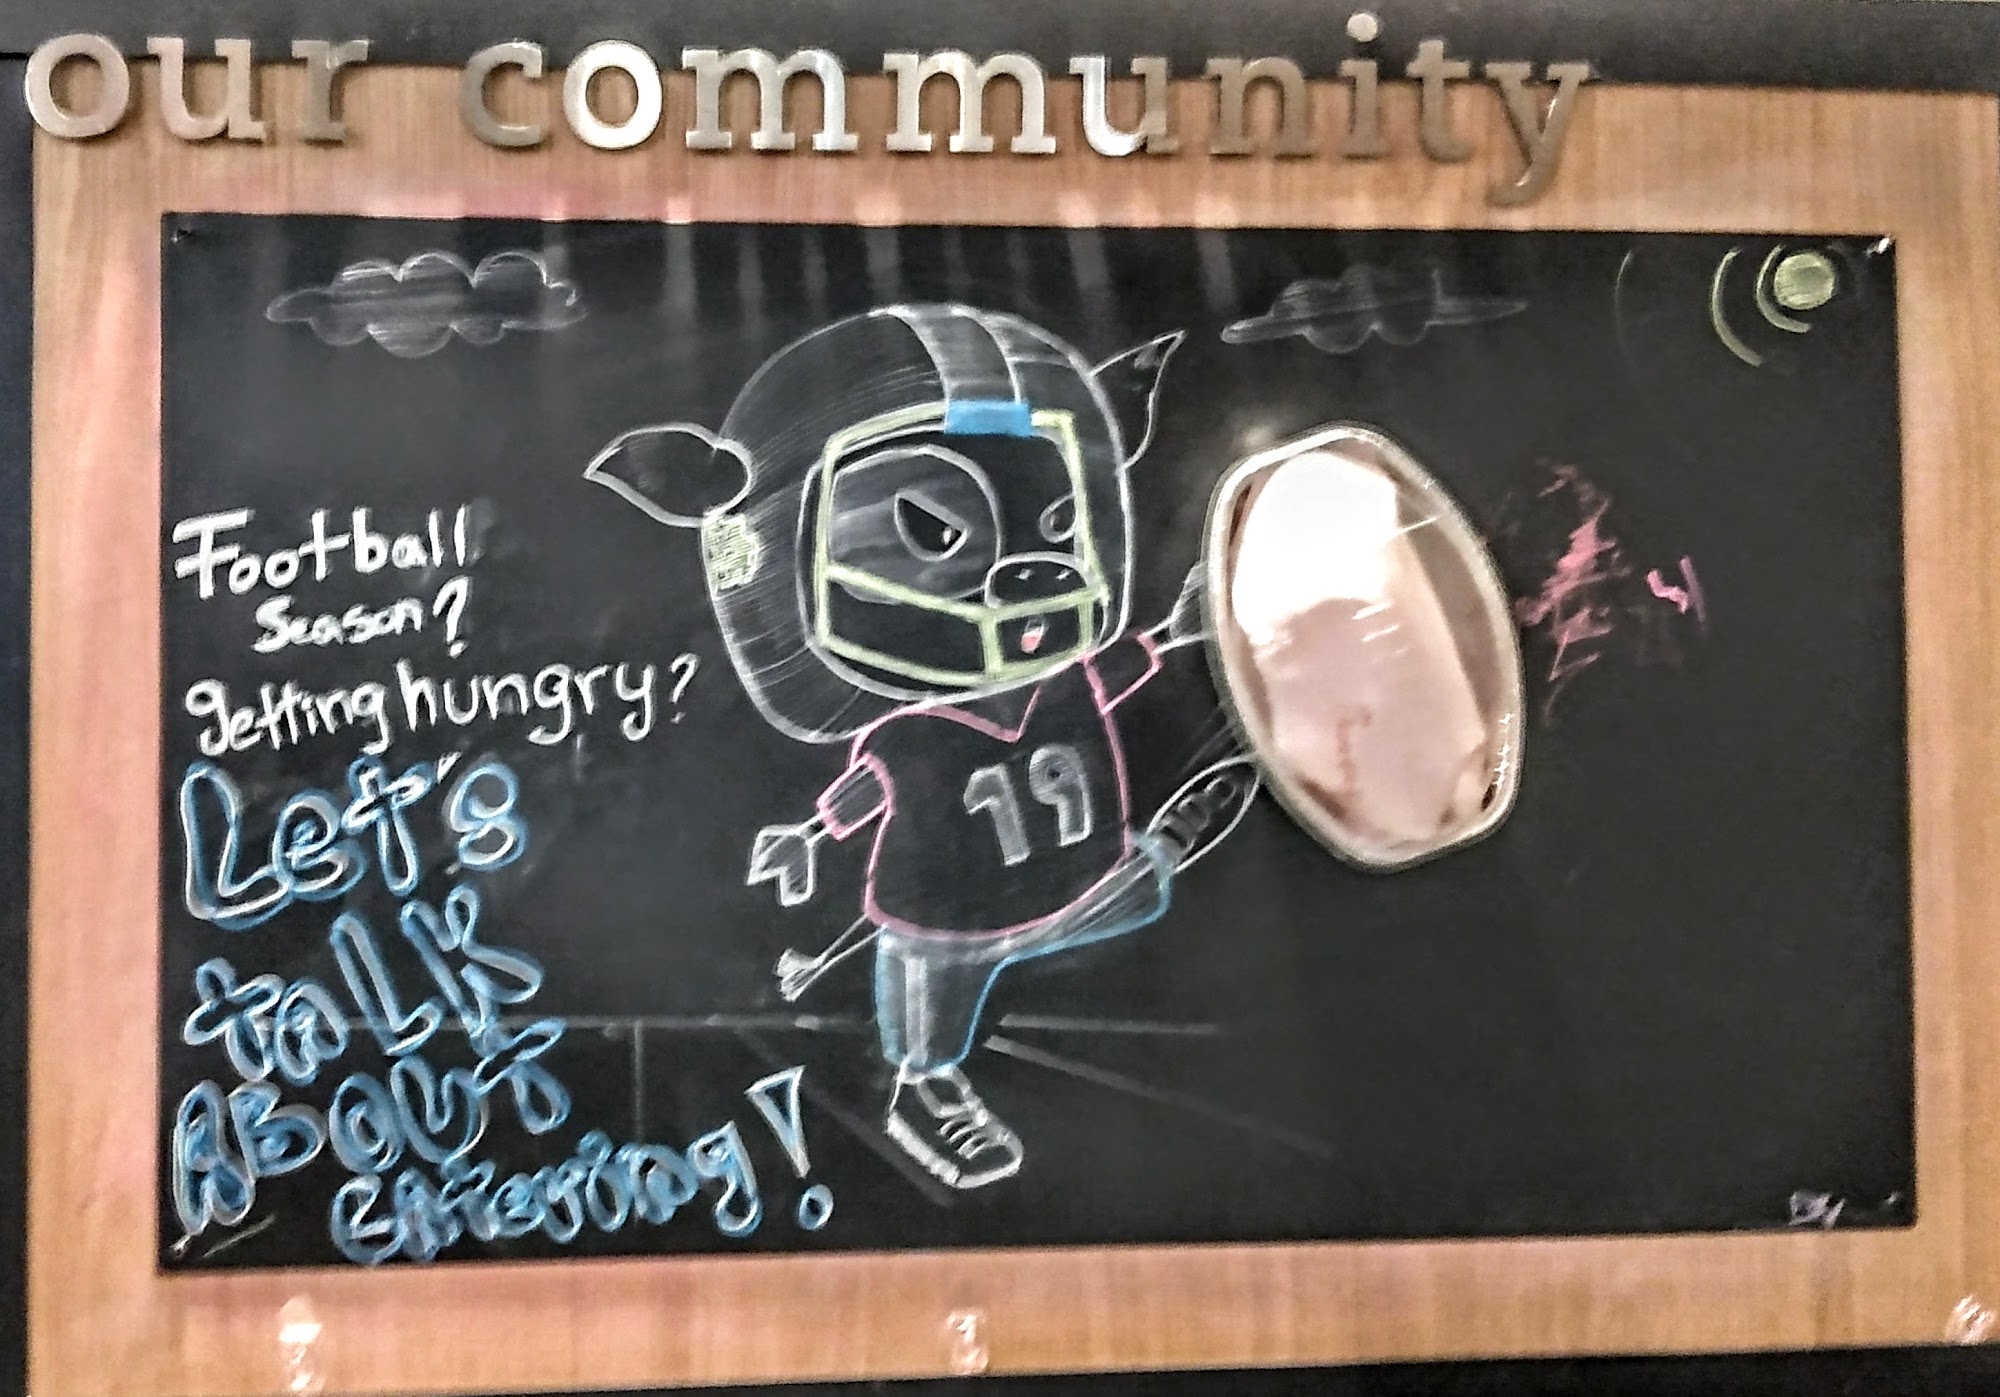 our community
Football
Season?
getting hungry?
Let's
talk
About
Catering!
19